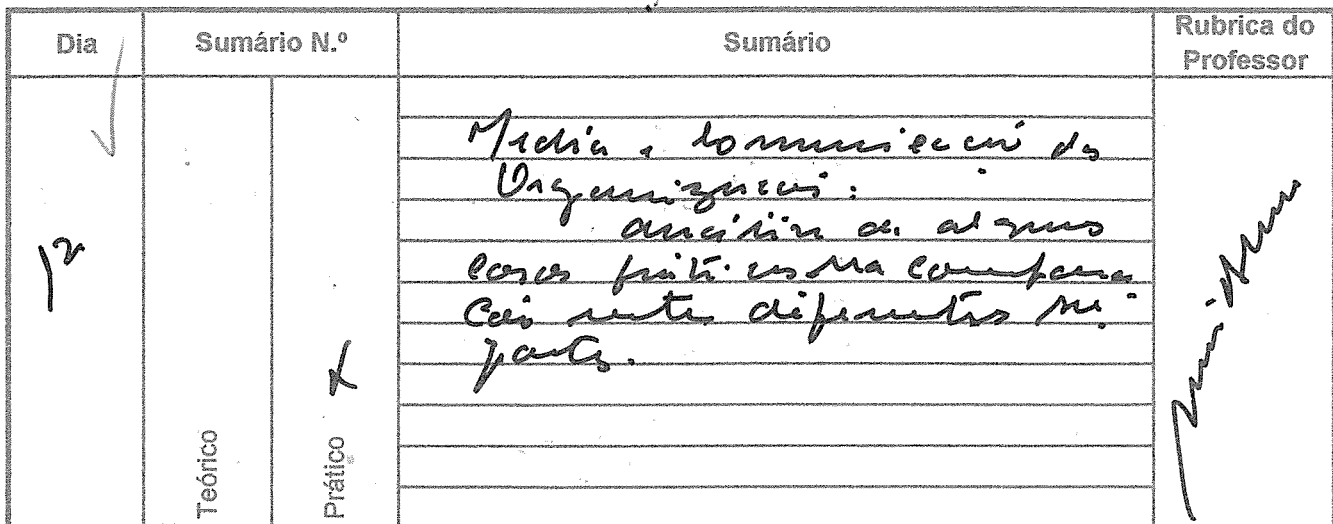 Dia
Sumário N.º
Sumário
Rubrica do
Professor
12
Teórico
Prático
x
Media e Comunicação das
Organizações:
análise de alguns
casos práticos na compara
ção entre diferentes su
portes.